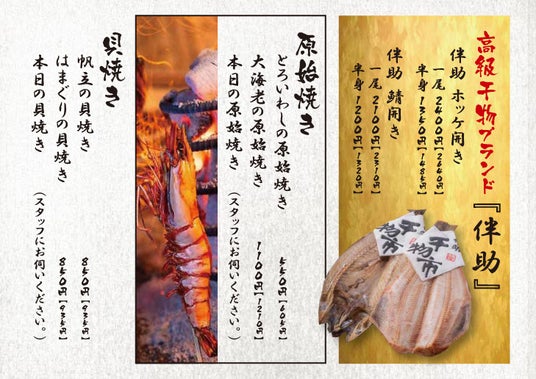 高級干物ブランド『伴助』
伴助 ホッケ開き
一尾 2400円【2640円】
半身 1350円【1485円】
伴助 鯖開き
一尾 2100円【2310円】
半身 1200円【1320円】
干物市
原始焼き
とろいわしの原始焼き 550円【605円】
大海老の原始焼き 1100円【1210円】
本日の原始焼き (スタッフにお伺いください。)
貝焼き
帆立の貝焼き 850円【935円】
はまぐりの貝焼き 850円【935円】
本日の貝焼き (スタッフにお伺いください。)